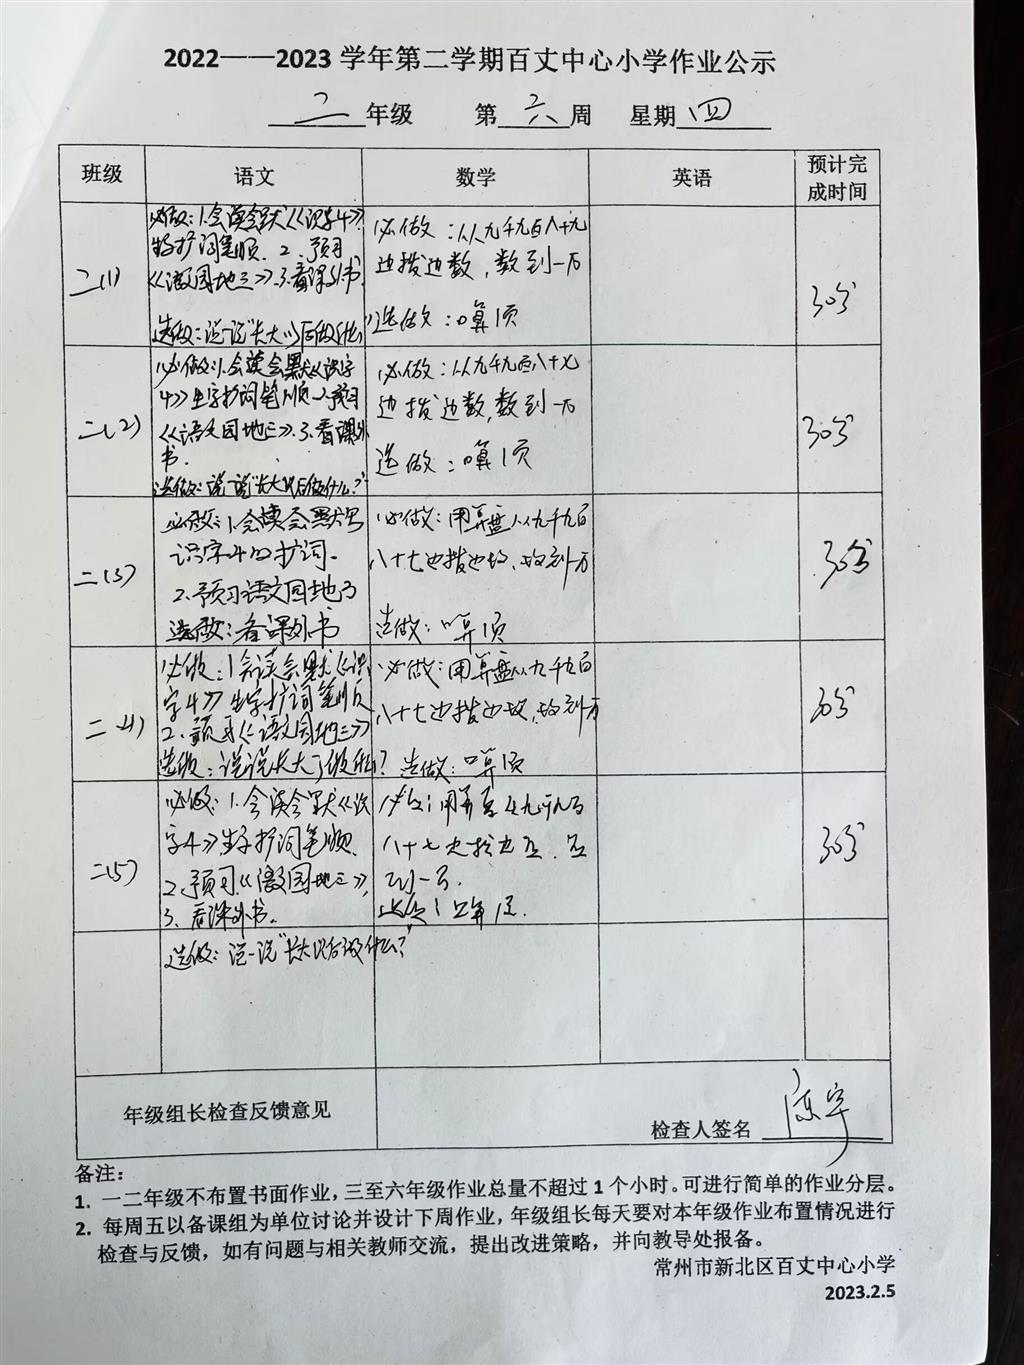 2022——2023 学年第二学期百丈中心小学作业公示
二 年级 第 六 周 星期 四
班级 语文 数学 英语 预计完成时间
二(1)
必做：1.会读会默《识字4》
生字扩词笔顺. 2. 预习
《语文园地三》.3.看课外书.
选做：说一说"长大以后做什么"
必做：从九千九百八十九
边拨边数，数到一万
选做：口算1页
30分
二(2)
必做：1.会读会默《识字
4》生字扩词笔顺 2.预习
《语文园地三》.3.看课外
书.
选做：说一说"长大以后做什么？"
必做：从九千九百八十七
边拨边数，数到一万
选做：口算1页
30分
二(3)
必做：1.会读会默写
识字4的扩词.
2.预习语文园地3
选做：看课外书
必做：用算盘从九千九百
八十七边拨边数，数到一万
选做：口算1页
30分
二(4)
必做：1会读会默《识
字4》生字扩词笔顺
2.预习《语文园地三》
选做：说说长大了做什么？
必做：用算盘从九千九百
八十七边拨边数，数到一万
选做：口算1页
30分
二(5)
必做：1.会读会默《识
字4》生字扩词笔顺.
2.预习《语文园地三》，
3.看课外书.
选做：说一说"长大以后做什么？"
必做：用算盘从九千九百
八十七边拨边数，数
到一万.
选做：口算1页.
30分
年级组长检查反馈意见
检查人签名
备注：
1. 一二年级不布置书面作业，三至六年级作业总量不超过 1 个小时。可进行简单的作业分层。
2. 每周五以备课组为单位讨论并设计下周作业，年级组长每天要对本年级作业布置情况进行
检查与反馈，如有问题与相关教师交流，提出改进策略，并向教导处报备。
常州市新北区百丈中心小学
2023.2.5